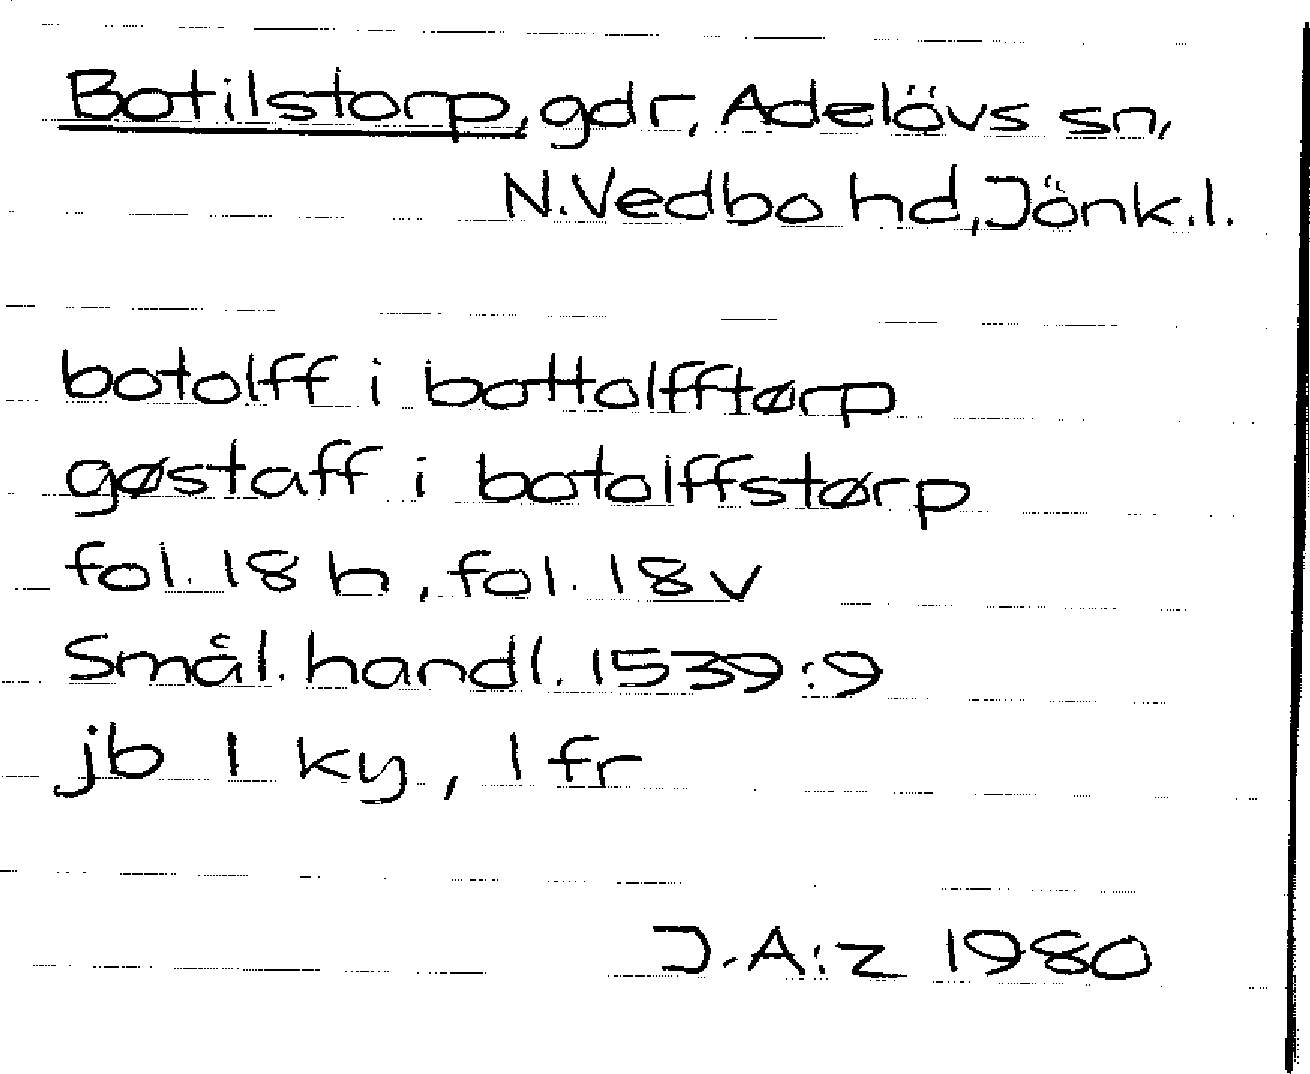 Botilstorp, gdr, Adelövs sn,
N.Vedbo hd, Jönk.l.
botolff i bottolfftørp
gøstaff i botolffstørp
fol. 18 h, fol. 18 v
Smål. handl. 1539:9
jb 1 ky, 1 fr
J.A:z 1980